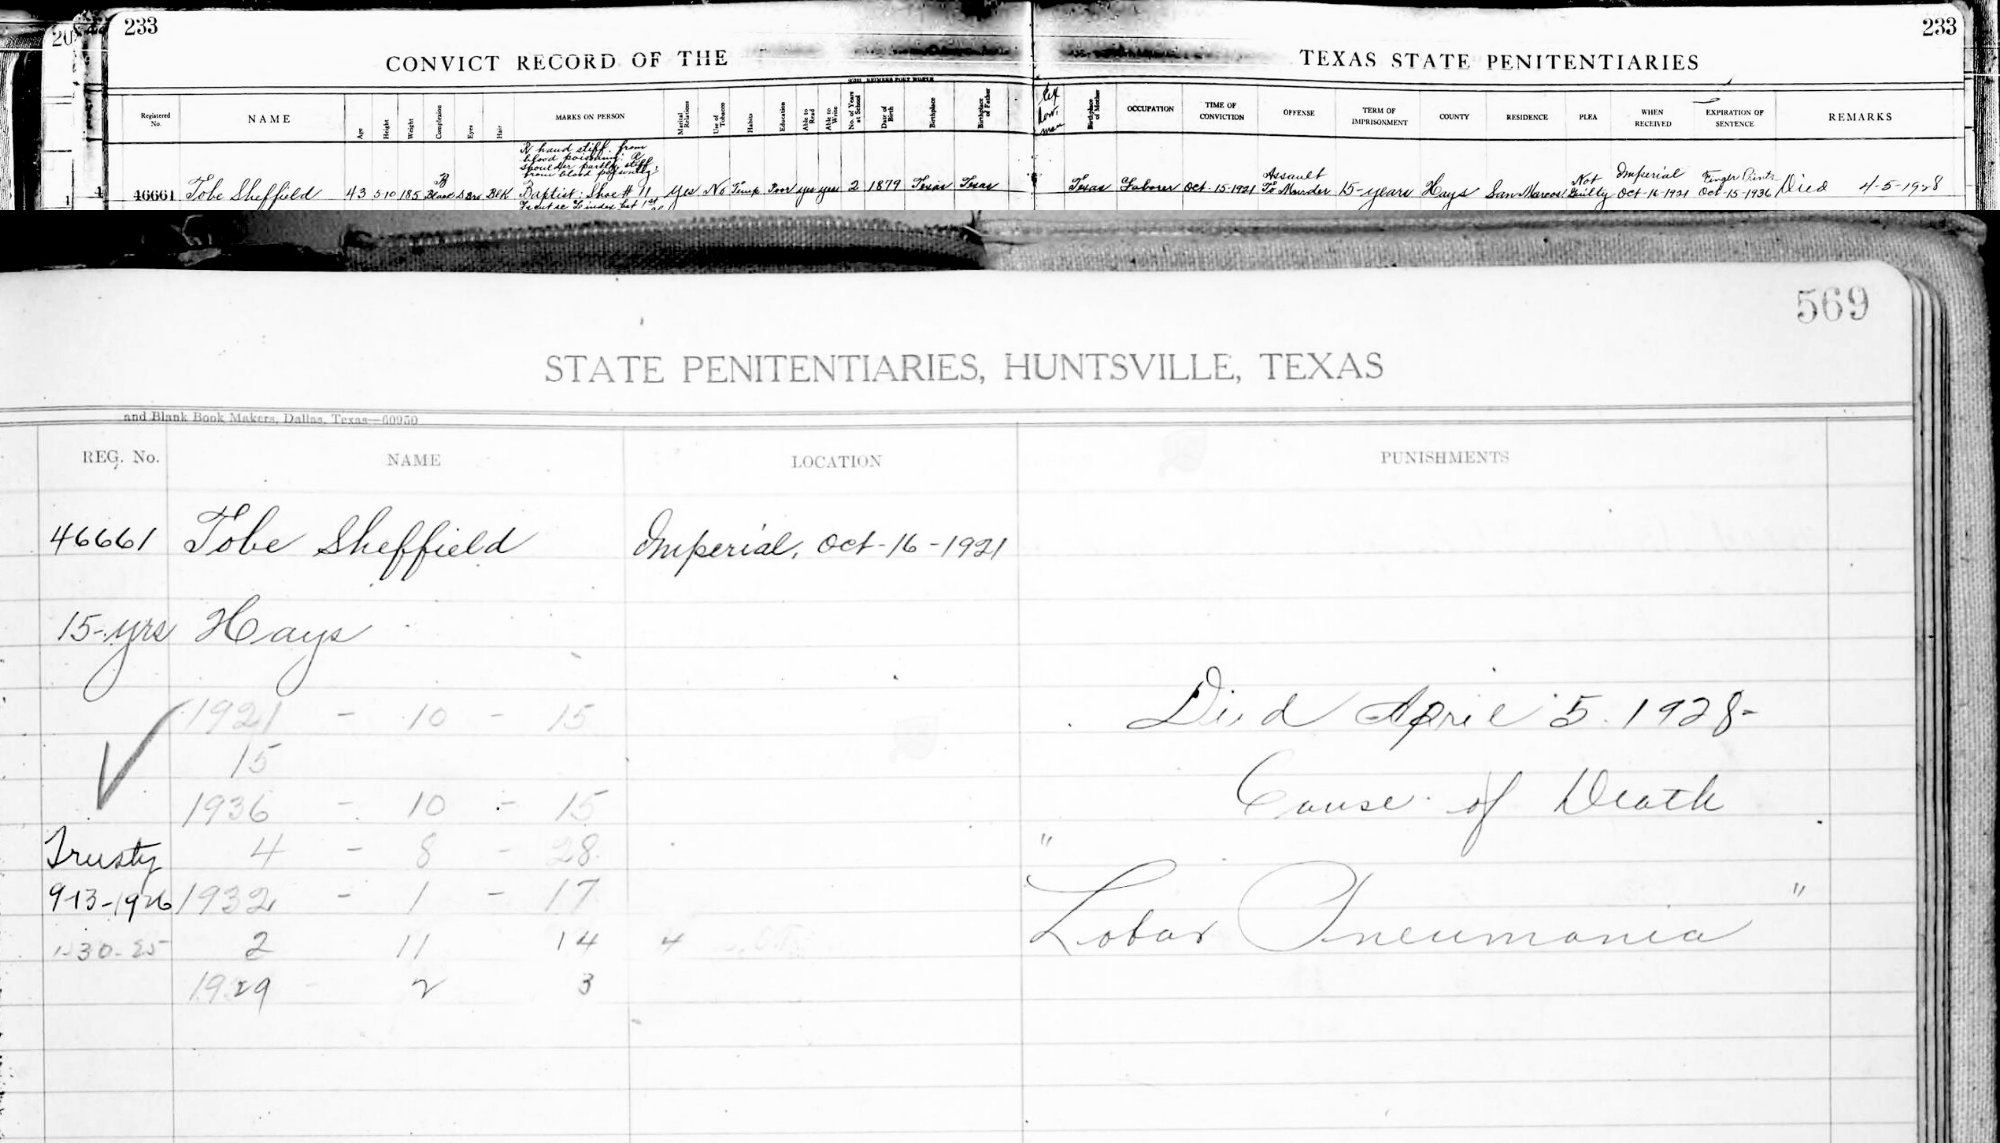 233
233
20
CONVICT RECORD OF THE
TEXAS STATE PENITENTIARIES
Registered No.
NAME
Age
Height
Weight
Complexion
Eyes
Hair
MARKS ON PERSON
Marital Relations
Use of Tobacco
Habits
Education
Able to Read
Able to Write
No. of Years at School
Date of Birth
Birthplace
Birthplace of Father
Birthplace of Mother
OCCUPATION
TIME OF CONVICTION
OFFENSE
TERM OF IMPRISONMENT
COUNTY
RESIDENCE
PLEA
WHEN RECEIVED
EXPIRATION OF SENTENCE
REMARKS
R hand stiff from
blood poisoning. R
shoulder partly stiff
from blood poisoning
46661 Tobe Sheffield 43 5 10 185 Black Brs Blk Baptist. Shoe # 11 Yes No Temp. Poor yes yes 2 1879 Texas Texas Texas Laborer Oct-15-1921 Assault To Murder 15-years Hays San Marcos Not Guilty Imperial Oct-16-1921 Finger Print Oct-15-1936 Died 4-5-1928
569
STATE PENITENTIARIES, HUNTSVILLE, TEXAS
and Blank Book Makers, Dallas, Texas—60950
REG. No. NAME LOCATION PUNISHMENTS
46661 Tobe Sheffield Imperial, Oct-16-1921
15-yrs Hays
1921 - 10 - 15 Died April 5. 1928-
15
1936 - 10 - 15 Cause of Death
Trusty 4 - 8 - 28
9-13-1926 1932 - 1 - 17 " Lobar Pneumonia "
1-30-25 2 11 14 4
1929 - 2 3